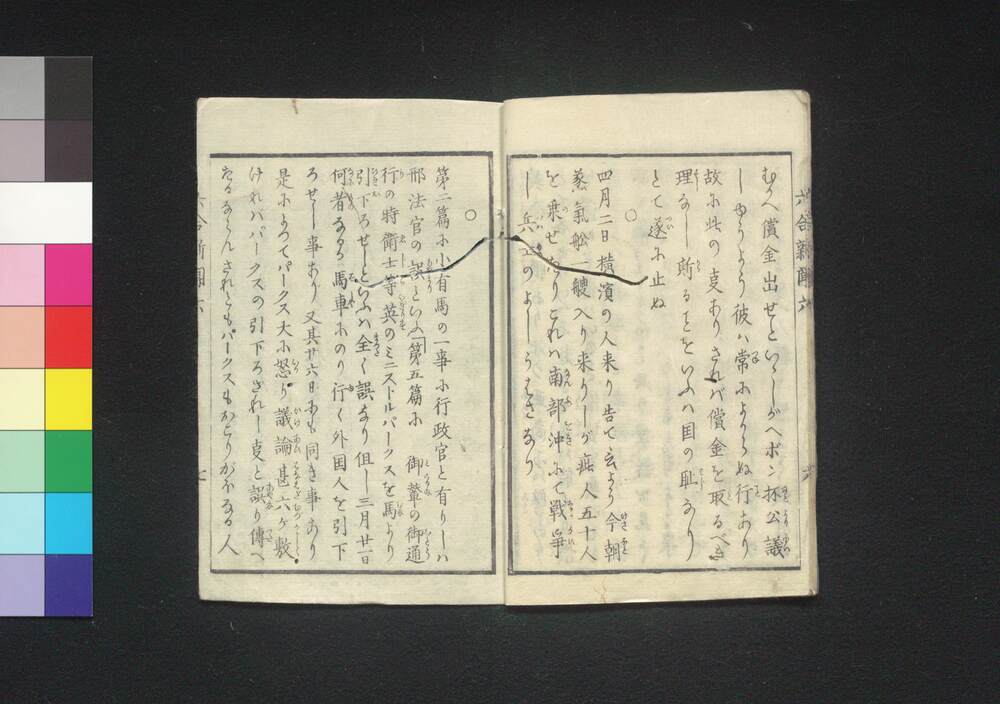 むへ償金出せといひしがヘボン抔公議
しゆるより彼ハ常によからぬ行あり
故に此の変ありされバ償金を取るべき
理なし所るをといふハ国の耻なり
とて遂に止ぬ
○
四月二日横濱の人来り告て云より今朝
蒸氣舩一艘入り来りしが疵人五十人
を乗せ居りこれハ南部沖にて戦争
し兵士のよしうけたまはりき
六合新聞六
六
○
第二篇に小有馬の一事に行政官と有りしハ
邢法官の誤といふ「第五篇に 御輦の御通
行の時衛士等英のミニストルパークスを馬より
引下ろせしといふハ全く誤なり但し三月廿一日
何者なるか馬車にのり行く外国人を引下
ろせし事あり又其廿六日にも同き事あり
是によつてパークス大に怒り議論甚六ケ敷
けれバパークスの引下ろされし変と誤り傳へ
たるならんされどもパークスもかどりがたなる人
六合新聞六
七